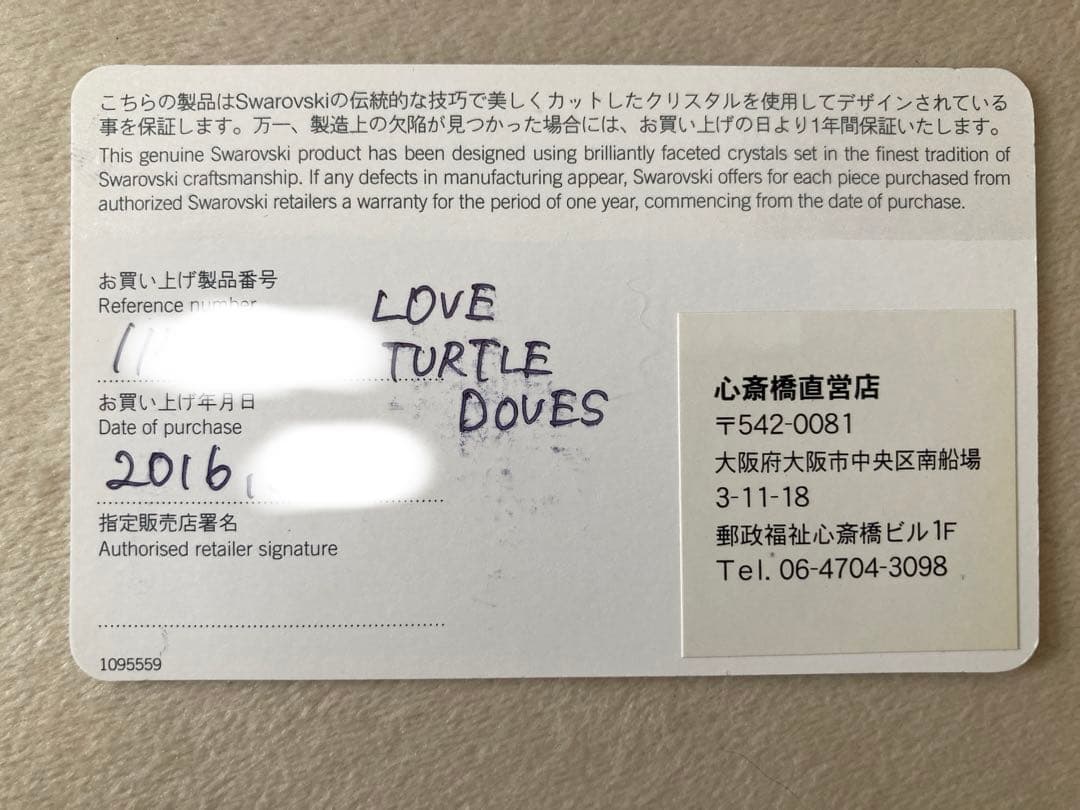 こちらの製品はSwarovskiの伝統的な技巧で美しくカットしたクリスタルを使用してデザインされている
事を保証します。万一、製造上の欠陥が見つかった場合には、お買い上げの日より1年間保証いたします。
This genuine Swarovski product has been designed using brilliantly faceted crystals set in the finest tradition of
Swarovski craftsmanship. If any defects in manufacturing appear, Swarovski offers for each piece purchased from
authorized Swarovski retailers a warranty for the period of one year, commencing from the date of purchase.
お買い上げ製品番号
Reference number
11
LOVE
TURTLE
DOVES
お買い上げ年月日
Date of purchase
2016
指定販売店署名
Authorised retailer signature
1095559
心斎橋直営店
〒542-0081
大阪府大阪市中央区南船場
3-11-18
郵政福祉心斎橋ビル1F
Tel. 06-4704-3098